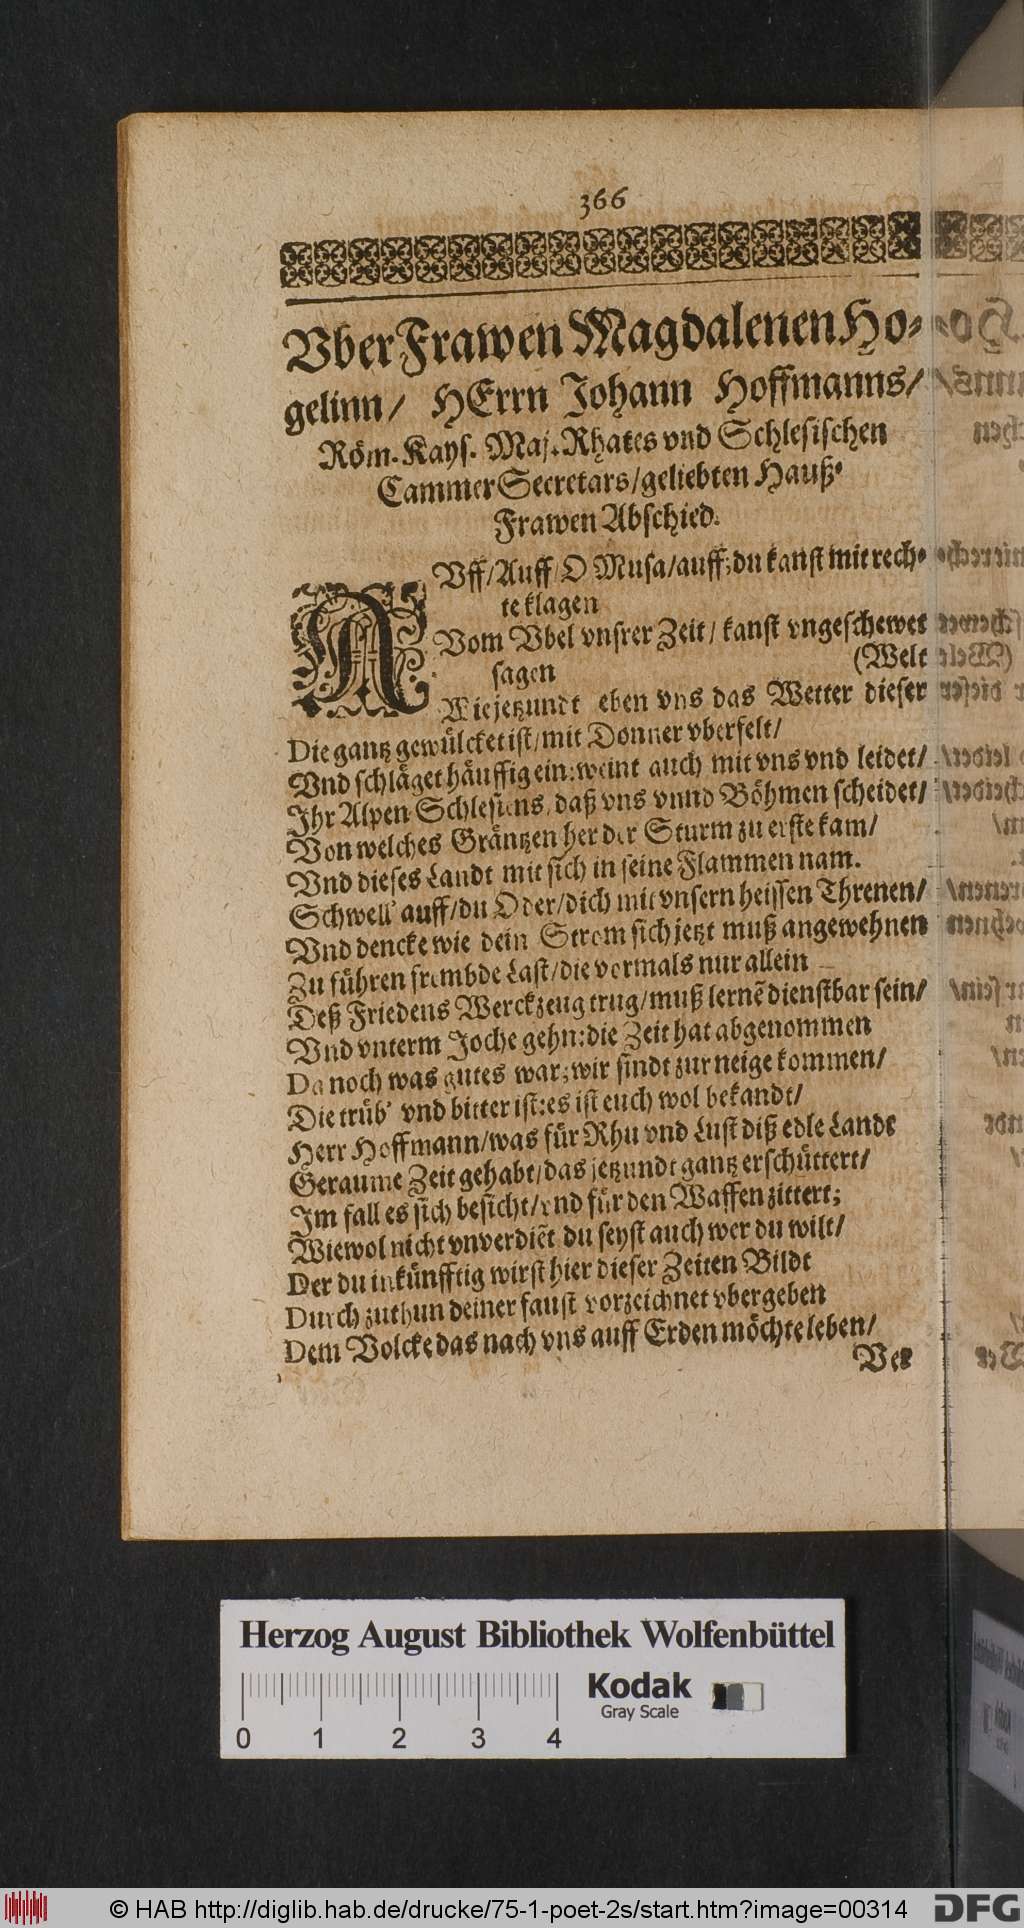 366
Vber Frawen Magdalenen Ho-
gelinn/ HErrn Johann Hoffmanns/
Röm. Kays. Maj. Rhates vnd Schlesischen
Cammer Secretars/geliebten Hauß-
Frawen Abschied.
AVff/Auff/O Musa/auff; du kanst mit rech-
te klagen
Vom Vbel vnsrer Zeit/ kanst vngeschewet
sagen (Welt
Wie jetzundt eben vns das Wetter dieser
Die gantz gewülcket ist/mit Donner vberfelt/
Vnd schläget häuffig ein: weint auch mit vns vnd leidet/
Ihr Alpen Schlesiens, daß vns vnnd Böhmen scheidet/
Von welches Gräntzen her der Sturm zu erste kam/
Vnd dieses Landt mit sich in seine Flammen nam.
Schwell' auff/du Oder/dich mit vnsern heissen Threnen/
Vnd dencke wie dein Strom sich jetzt muß angewehnen
Zu führen frembde Last/die vormals nur allein
Deß Friedens Werckzeug trug/muß lernẽ dienstbar sein/
Vnd vnterm Joche gehn: die Zeit hat abgenommen
Da noch was gutes war; wir sindt zur neige kommen/
Die trüb' vnd bitter ist: es ist euch wol bekandt/
Herr Hoffmann/was für Rhu vnd Lust diß edle Landt
Geraume Zeit gehabt/das jetzundt gantz erschüttert/
Im fall es sich besicht/vnd für den Waffen zittert;
Wiewol nicht vnverdiẽt du seyst auch wer du wilt/
Der du inkünfftig wirst hier dieser Zeiten Bildt
Durch zuthun deiner faust vorzeichnet vbergeben
Dem Volcke das nach vns auff Erden möchte leben/
Ver
Herzog August Bibliothek Wolfenbüttel
0 1 2 3 4
Kodak
Gray Scale
© HAB http://diglib.hab.de/drucke/75-1-poet-2s/start.htm?image=00314
DFG